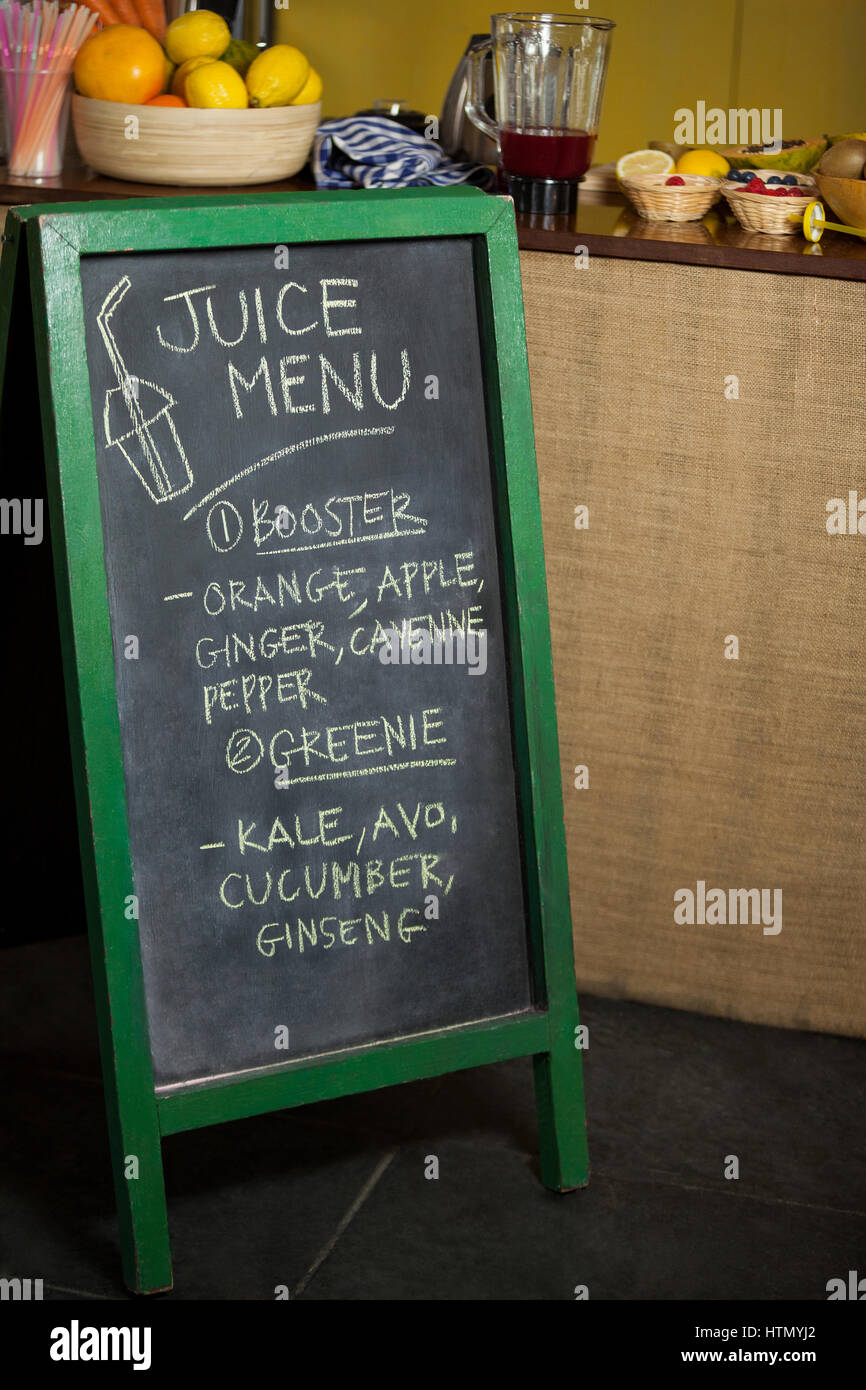 JUICE
MENU
① BOOSTER
- ORANGE, APPLE,
GINGER, CAYENNE
PEPPER
② GREENIE
- KALE, AVO,
CUCUMBER,
GINSENG
alamy
Image ID: HTMYJ2
www.alamy.com